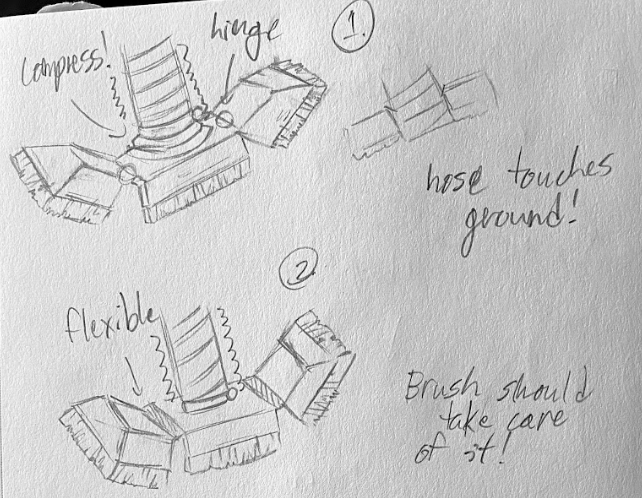 compress!
hinge
1.
hose touches
ground!
2.
flexible
Brush should
take care
of it!